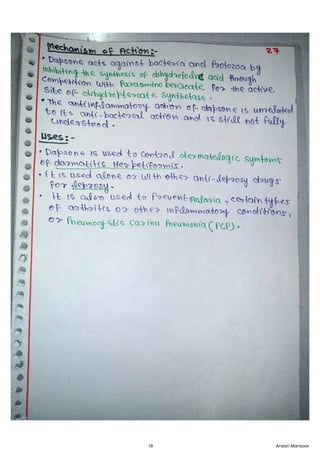 27
Mechanism of Action:-
• Dapsone acts against bacteria and Protozoa by
Inhibiting the synthesis of dihydrofolic acid through
Competition with Para amino benzoate for the active
site of dihydropteroate synthetase.
• The antiinflammatory action of dapsone is unrelated
to its anti-bacterial action and is still not fully
understood.
Uses:-
• Dapsone is used to control dermatologic symtoms
of darmatitis Herpetiformis.
• it is used alone or with other anti-leprosy drugs
for leprosy.
• it is also used to Prevent malaria, certain types
of arthritis or other inflammatory conditions,
or Pneumocystis carinii Pneumonia (PCP).
19
Ansari Mansoor